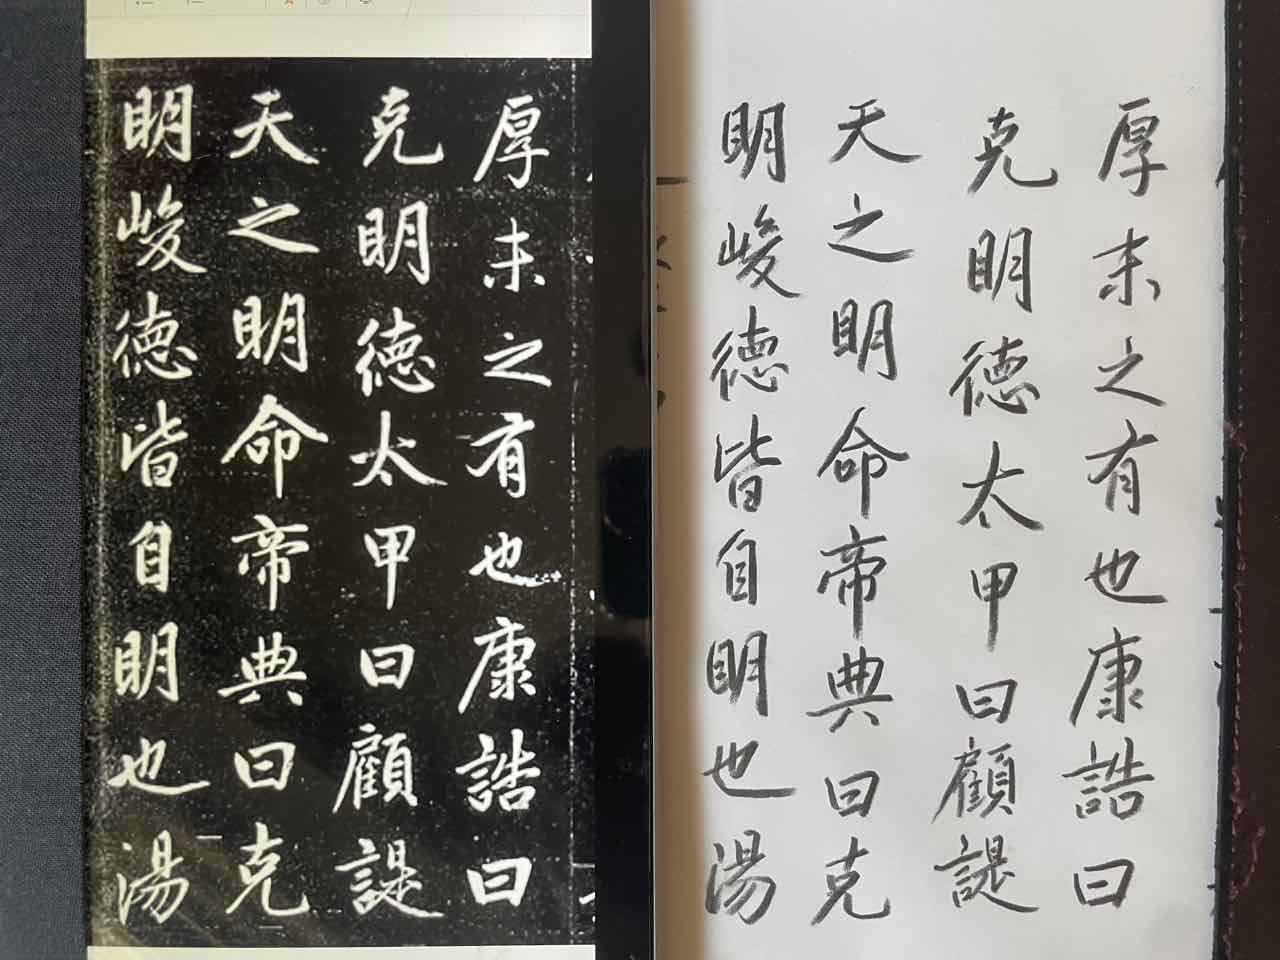 厚未之有也康誥曰
克明德太甲曰顧諟
天之明命帝典曰克
明峻德皆自明也湯
厚未之有也康誥曰
克明德太甲曰顧諟
天之明命帝典曰克
明峻德皆自明也湯